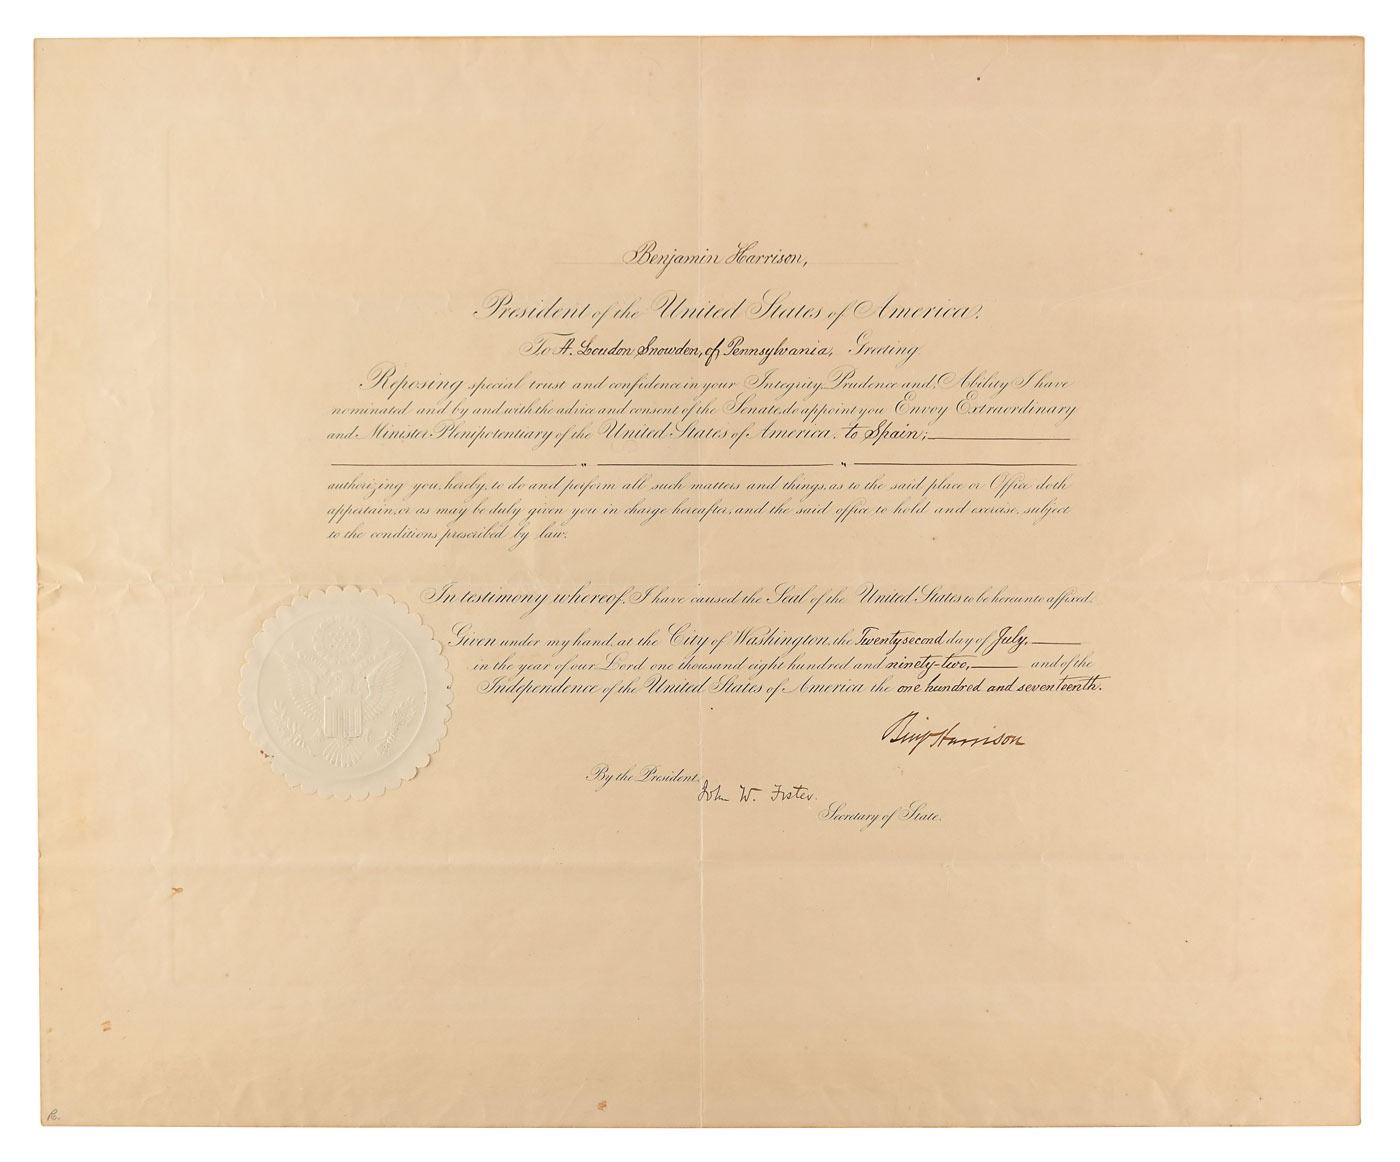 Benjamin Harrison,
President of the United States of America.
To A. Loudon Snowden, of Pennsylvania, Greeting
Reposing special trust and confidence in your Integrity, Prudence and, Ability I have
nominated and by and with the advice and consent of the Senate, do appoint you Envoy Extraordinary
and Minister Plenipotentiary of the United States of America, to Spain;
authorizing you, hereby, to do and perform all such matters and things, as to the said place or Office doth
appertain, or as may be duly given you in charge hereafter, and the said office to hold and exercise, subject
to the conditions prescribed by law.
In testimony whereof, I have caused the Seal of the United States to be hereunto affixed.
Given under my hand, at the City of Washington, the Twenty second day of July,
in the year of our Lord one thousand eight hundred and ninety-two, and of the
Independence of the United States of America the one hundred and seventeenth.
Benj Harrison
By the President,
John W. Foster.
Secretary of State.